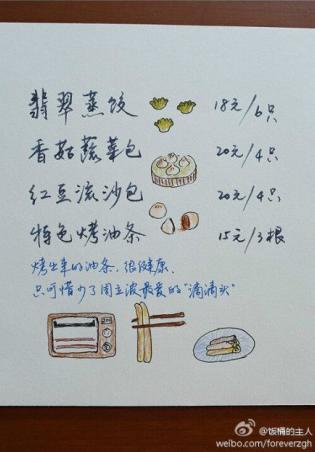 翡翠蒸饺 18元/6只
香菇蔬菜包 20元/4只
红豆流沙包 20元/4只
特色烤油条 15元/3根
烤出来的油条，很健康，
只可惜少了周立波最爱的“滴滴头”
@饭桶的主人
weibo.com/foreverzgh